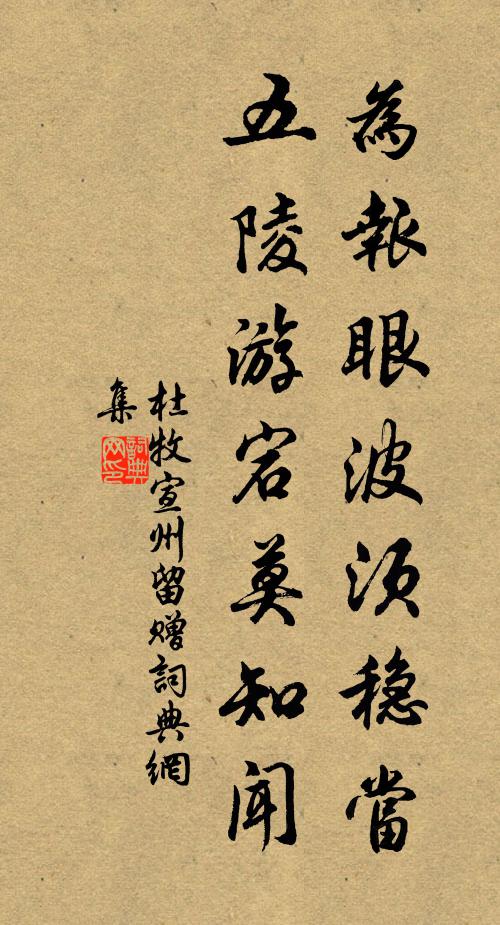 為報眼波須穩當
五陵游宕莫知聞
杜牧宣州留贈詞典網
集
詞典
网印